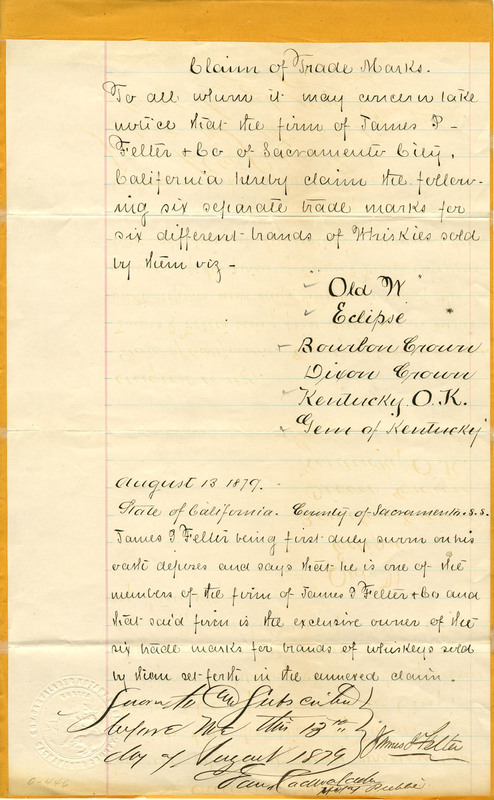 Claim of Trade Marks.
To all whom it may concern take
notice that the firm of James P-
Felter & Co of Sacramento City,
California hereby claim the follow-
ing six separate trade marks for
six different brands of Whiskies sold
by them viz -
"Old W"
Eclipse "
Bourbon Crown
Dixon Crown
Kentucky O.K.
Gem of Kentucky
August 13 1879.
State of California. County of Sacramento. s.s.
James P Felter being first duly sworn on his
oath deposes and says that he is one of the
members of the firm of James P Felter & Co and
that said firm is the exclusive owner of the
six trade marks for brands of whiskeys sold
by them set forth in the annexed claim.
Sworn to and Subscribed
before me this 13th
day of August 1879
James P Felter
Cadwalader
Notary Public